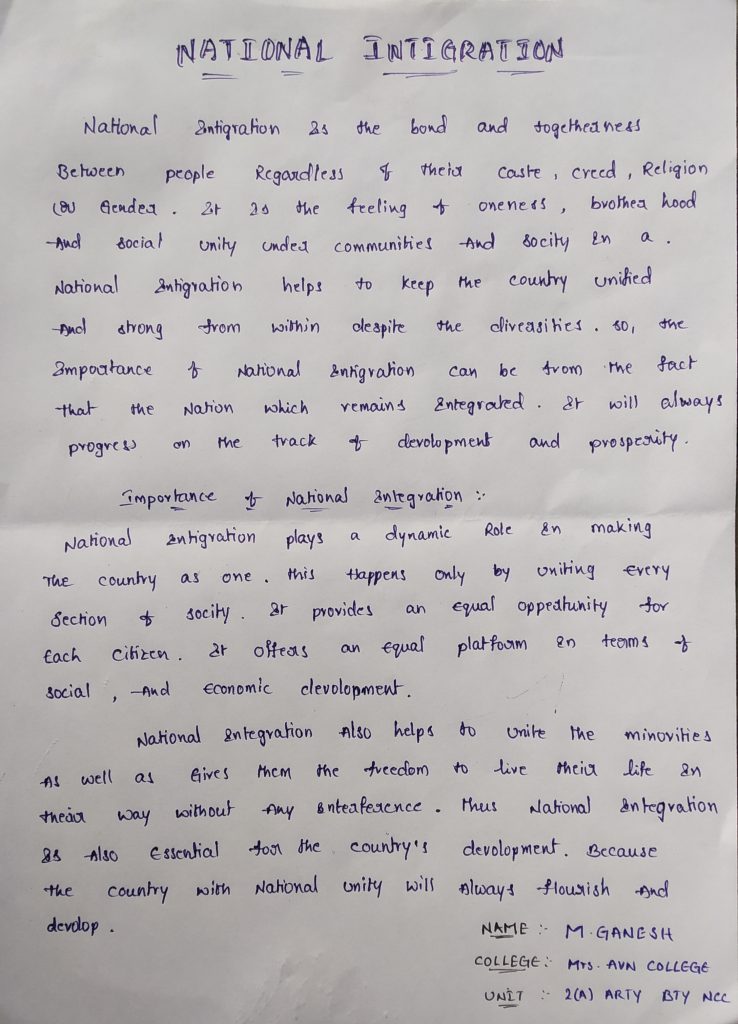 NATIONAL INTIGRATION
National Intigration Is the bond and togetherness
Between people Regardless of their caste, creed, Religion
(or Gender. It Is the feeling of oneness, brother hood
And social unity under communities And socity In a.
National Intigration helps to keep the country unified
And strong from within despite the diversities. so, the
Importance of National Intigration can be from the fact
that the Nation which remains Integrated. It will always
progress on the track of devolopment and prosperity.
Importance of National Integration :-
National Intigration plays a dynamic Role In making
The country as one. this Happens only by uniting Every
Section of socity. It provides an Equal oppertunity for
Each Citizen. It offers an Equal platform In terms of
social, And Economic devolopment.
National Integration Also helps to unite the minorities
As well as Gives them the freedom to live their life In
their way without Any Interference. Thus National Integration
Is Also Essential for the country's devolopment. Because
the country with National unity will Always flourish And
devolop.
NAME :- M. GANESH
COLLEGE :- Mrs. AVN COLLEGE
UNIT :- 2(A) ARTY BTY NCC